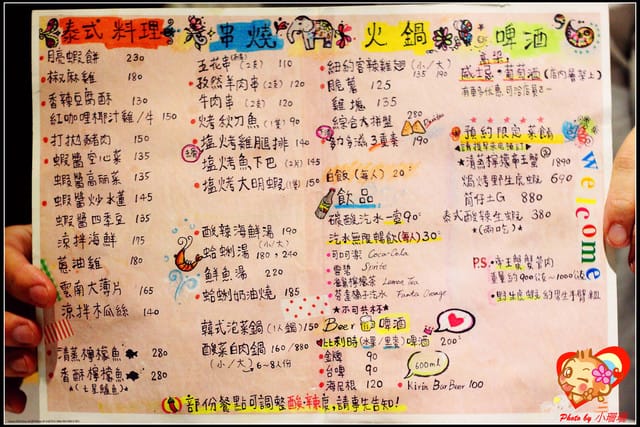 泰式料理
月亮蝦餅 230
椒麻雞 180
香辣豆腐酥 130
紅咖哩椰汁雞/牛 150
打拋豬肉 150
蝦醬空心菜 135
蝦醬高麗菜 135
蝦醬炒水蓮 145
蝦醬四季豆 135
涼拌海鮮 175
蔥油雞 180
雲南大薄片 165
涼拌木瓜絲 140
清蒸檸檬魚 280
香酥檸檬魚 280
*(七星鱸魚)*
串燒
五花串(2支) 110
孜然羊肉串(2支) 120
牛肉串(2支) 120
烤秋刀魚(1隻) 90
塩烤雞腿排 140
塩烤魚下巴(2片) 145
塩烤大明蝦(1隻) 150
酸辣海鮮湯 190
(小/大)
蛤蜊湯 180/240
鮮魚湯 220
蛤蜊奶油燒 185
韓式泡菜鍋(1人鍋) 150
酸菜白肉鍋 160/880
(小/大) 6~8人份
火鍋
紐約客辣雞翅(小/大) 135 190
脆薯 125
雞塊 135
綜合大拼盤 280
多力多滋3重奏 190
白飯(每人) 20元
飲品
碳酸汽水一壺90元
汽水無限暢飲(每人)30元
可口可樂 Coca-Cola
雪碧 Sprite
檸檬茶 Lemon Tea
芬達橘子汽水 Fanta Orange
★不可共杯★
Beer 啤酒
比利時(水果/黑麥)啤酒 200元
金牌 90
台啤 90
海尼根 120
600ml
Kirin Bar Beer 100
啤酒
威士忌·葡萄酒(店內層架上)
有更多優惠可洽店員~
預約限定菜餚
★清蒸檸檬帝王蟹 1890
焗烤野生虎蝦 690
筒仔土G 880
泰式酸辣生蝦 380
*(兩吃)*
P.S.
Welcome
部份餐點可調整酸、辣度,請事先告知!
Photo by 小珊珊